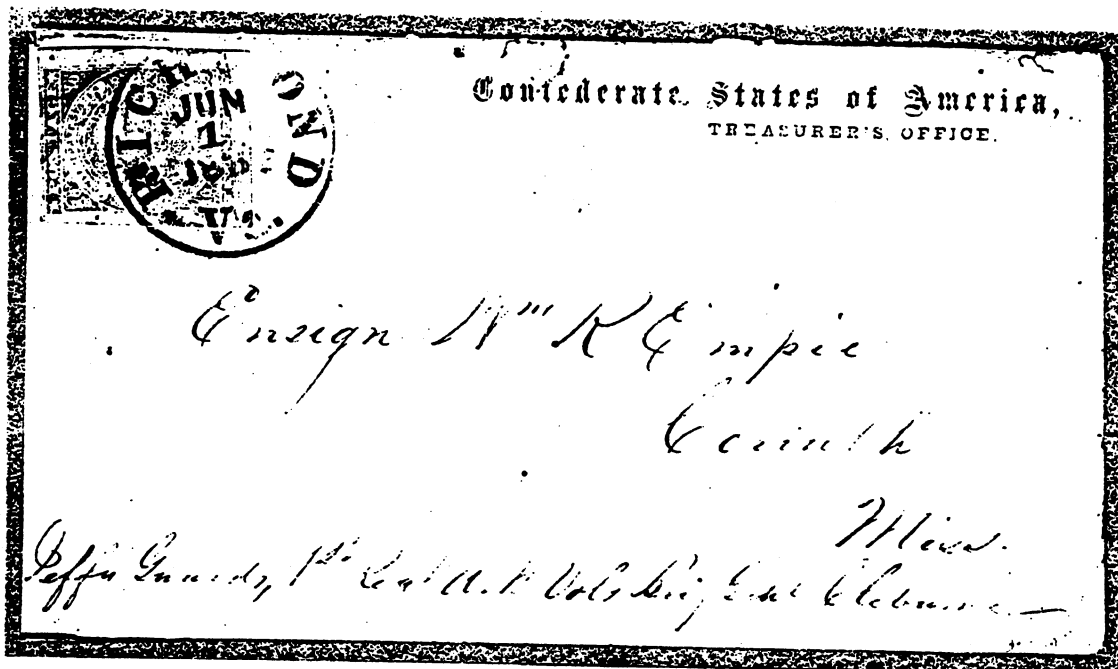 RICHMOND
JUN
1
186
VA.
Confederate States of America,
TREASURER'S OFFICE.
Ensign Wm K Empie
Corinth
Miss.
Guards, 1st Vols Brig Genl Cleburne